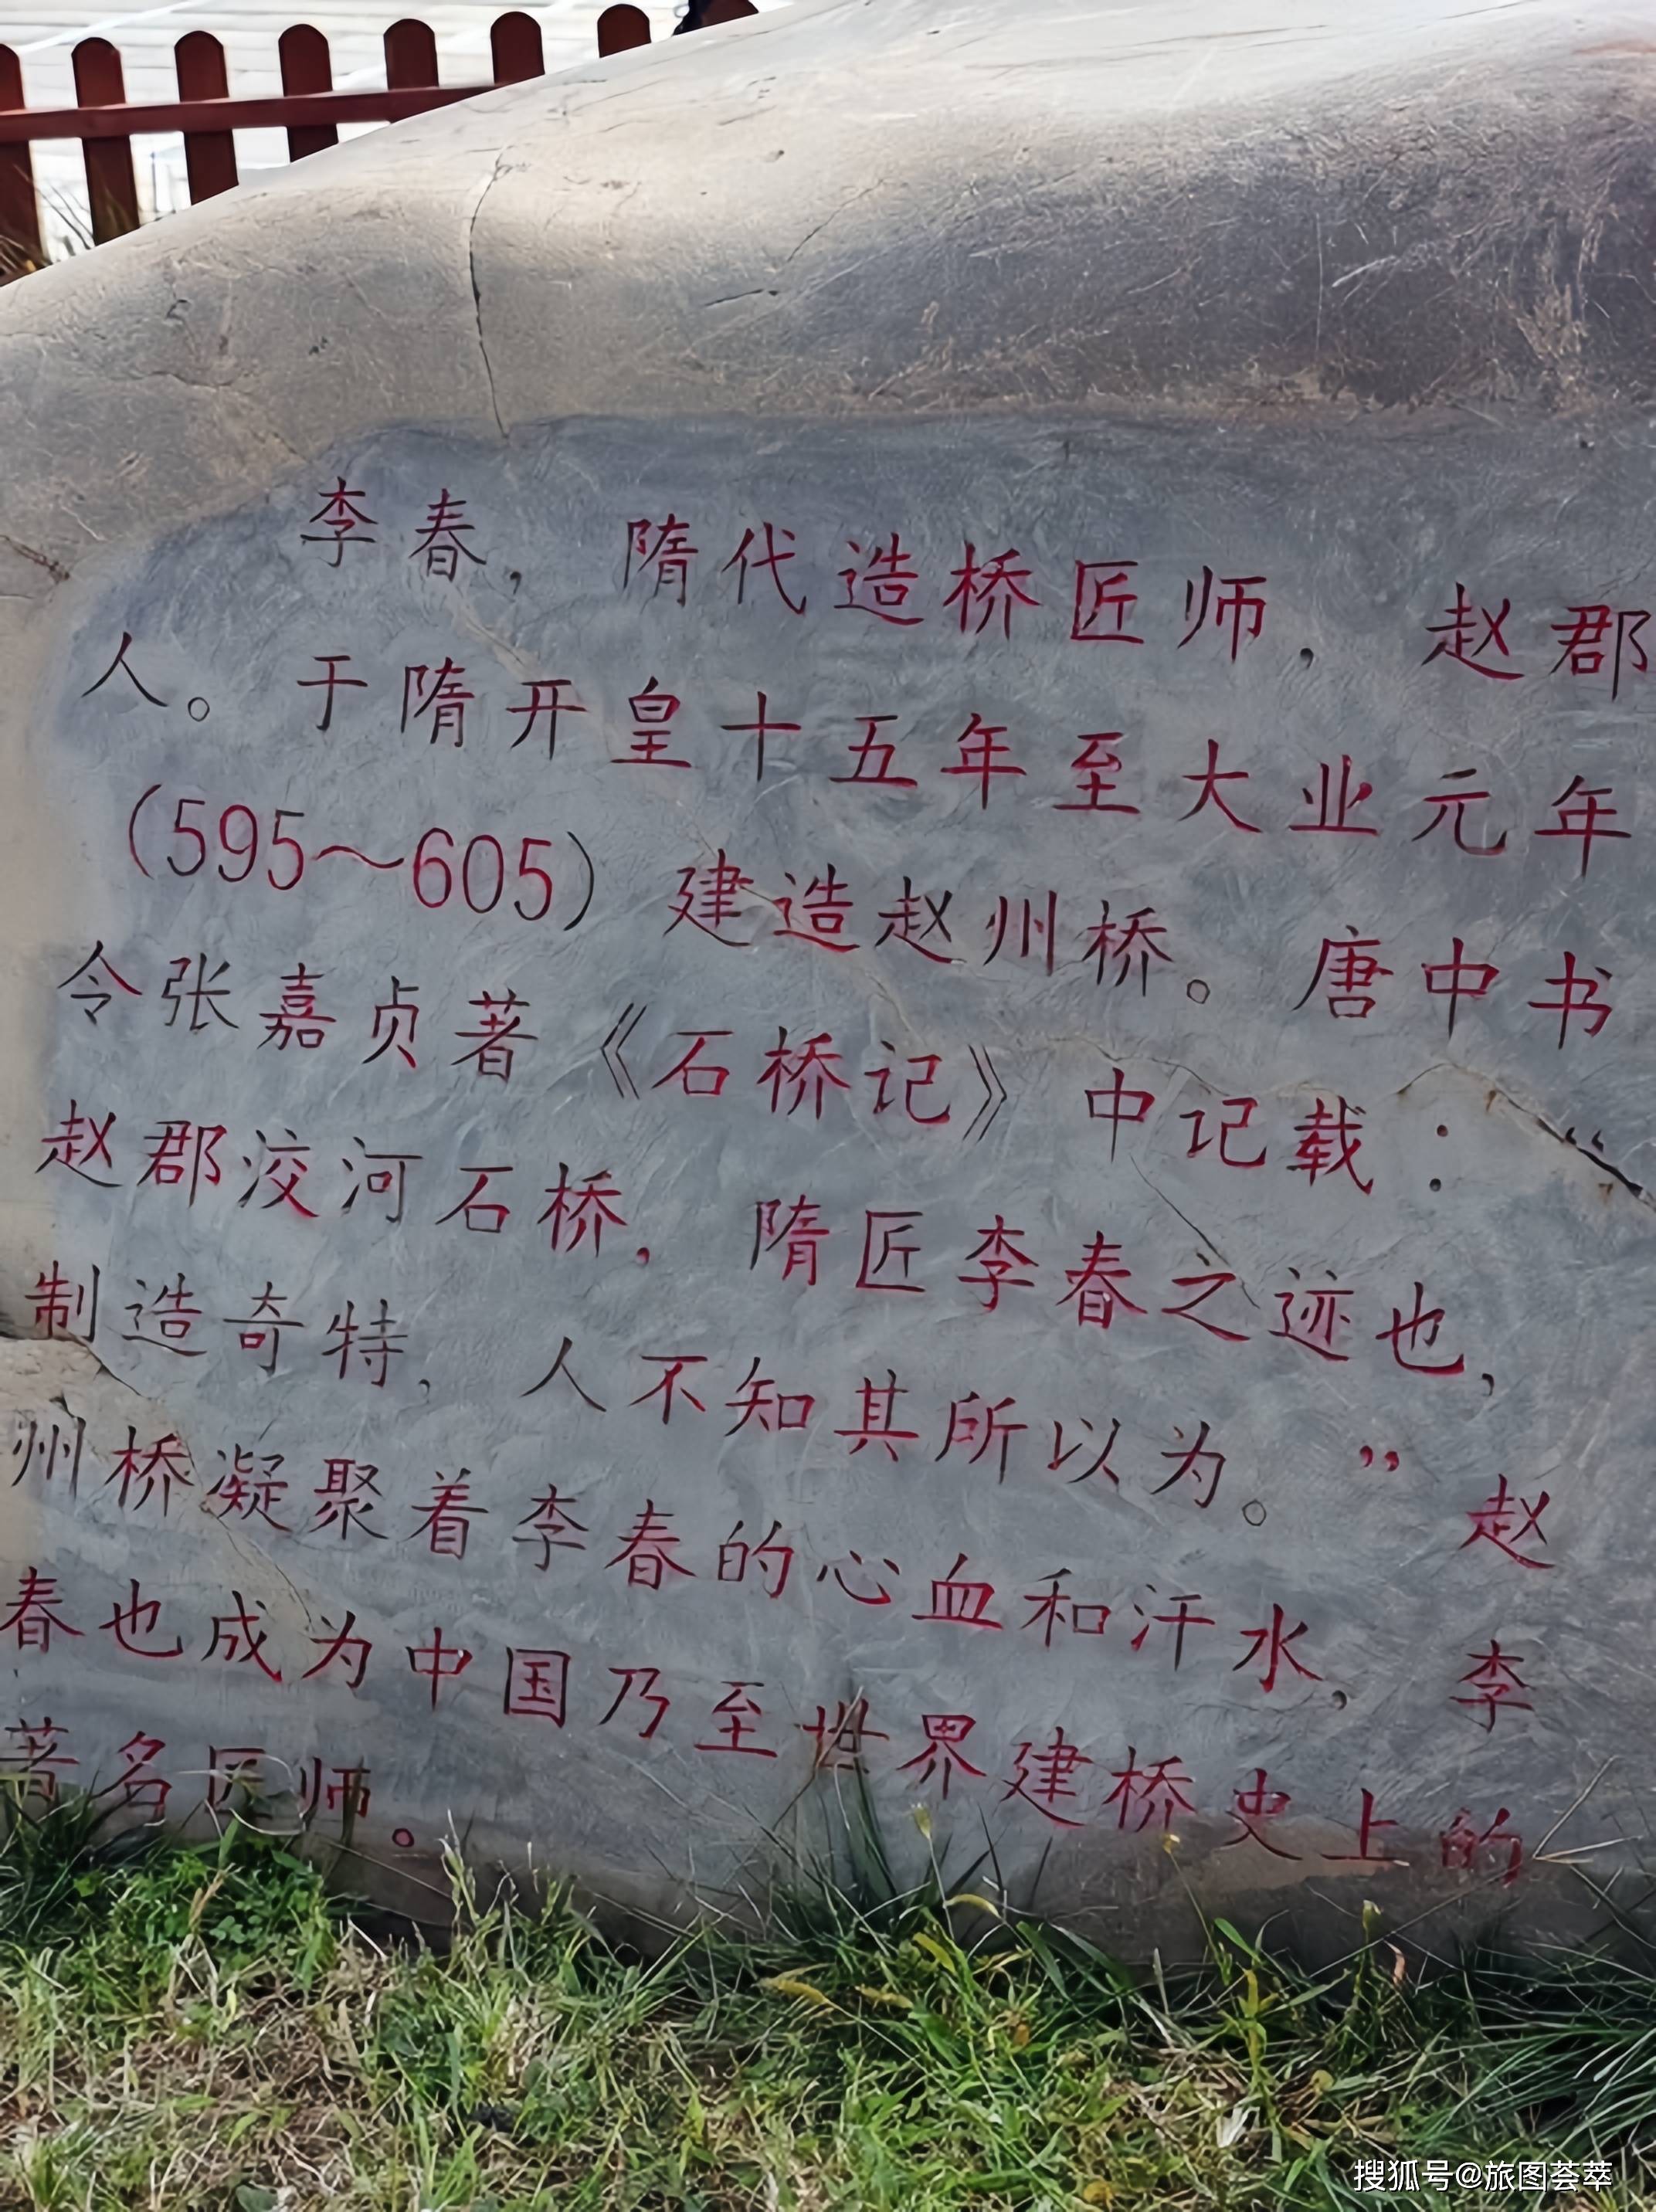 李春，隋代造桥匠师，赵郡
人。于隋开皇十五年至大业元年
(595～605)建造赵州桥。唐中书
令张嘉贞著《石桥记》中记载：“
赵郡洨河石桥，隋匠李春之迹也，
制造奇特，人不知其所以为。”赵
州桥凝聚着李春的心血和汗水，李
春也成为中国乃至世界建桥史上的
著名匠师。
搜狐号@旅图荟萃